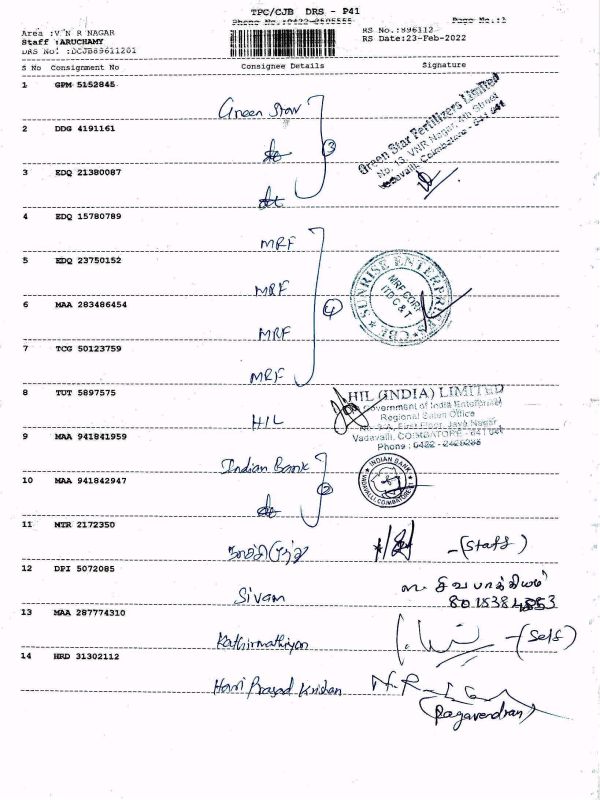 TPC/CJB DRS - P41
Phone No.:0422-2505555
Page No.:1
Area :V N R NAGAR
RS No.:896112
Staff :ARUCHAMY
RS Date:23-Feb-2022
DRS No. :DCJB89611201
S No Consignment No Consignee Details Signature
1 GPM 5152845
Green Star
Green Star Fertilizers Limited
No. 13, VNR Nagar, 4th Street
Vadavalli, Coimbatore - 641 041
2 DDG 4191161
do
3
3 EDQ 21380087
do
4 EDQ 15780789
MRF
5 EDQ 23750152
MRF
4
SUNRISE ENTERPRISES * CBE *
MRF CORP
ITD C & T
6 MAA 283486454
MRF
7 TCG 50123759
MRF
8 TUT 5897575
HIL
HIL (INDIA) LIMITED
Government of India Enterprise
Regional Sales Office
First Floor, Jaya Nagar
Vadavalli, COIMBATORE - 641 041
Phone : 0422 -
9 MAA 941841959
Indian Bank
INDIAN BANK
VADAVALLI, COIMBATORE
10 MAA 941842947
do
2
11 MTR 2172350
-(Staff)
12 DPI 5072085
Sivam
சிவபாக்கியம்
13 MAA 287774310
Kathirmathiyon
-(Self)
14 HRD 31302112
Hari Prasad Krishan
(Ragavendran)